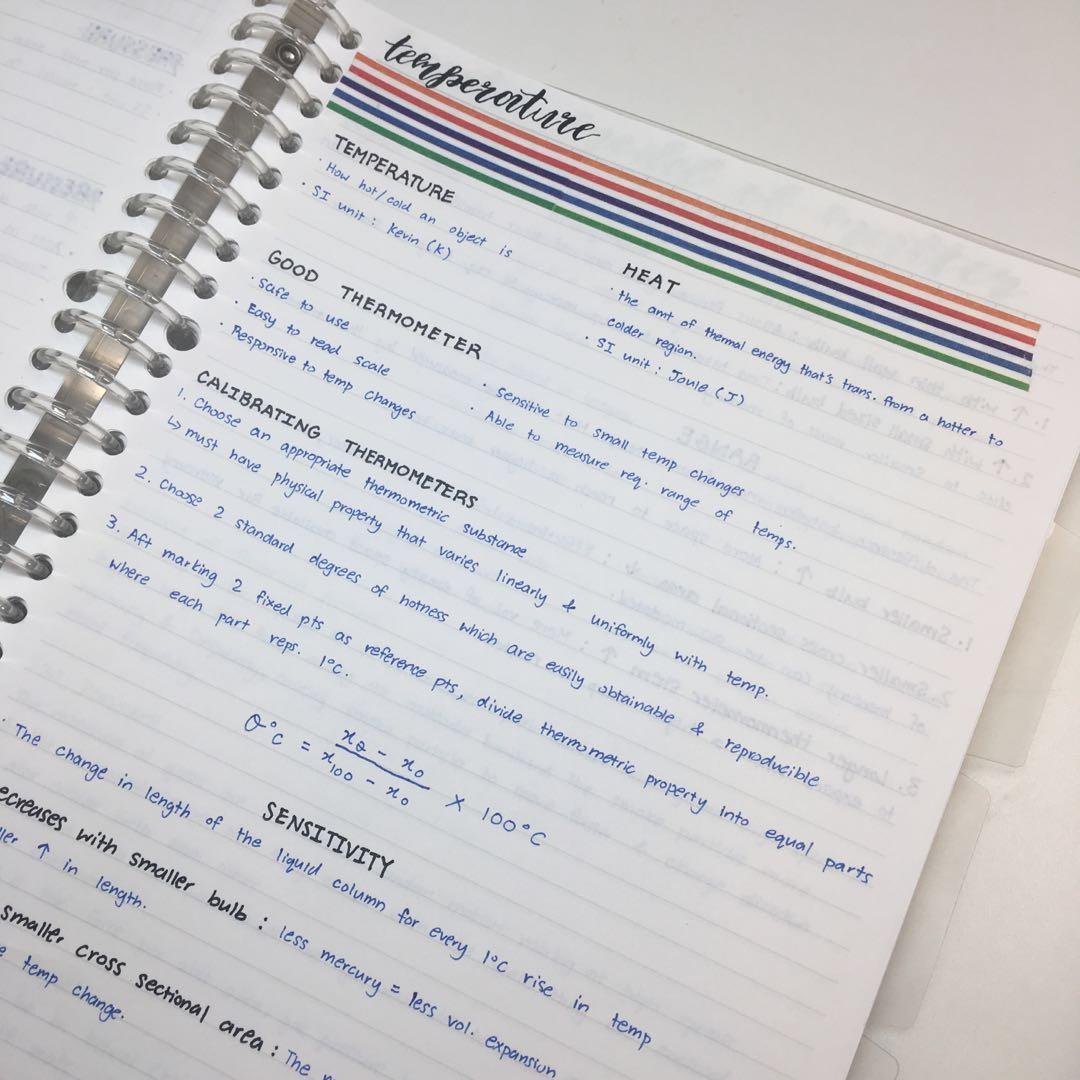 temperature
TEMPERATURE
· How hot/cold an object is
· SI unit : Kevin (K)
HEAT
· the amt of thermal energy that's trans. from a hotter to
colder region.
· SI unit : Joule (J)
GOOD THERMOMETER
· safe to use
· Easy to read scale
· Responsive to temp changes
· sensitive to small temp changes
· Able to measure req. range of temps.
CALIBRATING THERMOMETERS
1. Choose an appropriate thermometric substance
↳ must have physical property that varies linearly & uniformly with temp.
2. Choose 2 standard degrees of hotness which are easily obtainable & reproducible
3. Aft marking 2 fixed pts as reference pts, divide thermometric property into equal parts
where each part reps. 1°C.
θ°C = (xθ - x0) / (x100 - x0) × 100°C
SENSITIVITY
· The change in length of the liquid column for every 1°C rise in temp
with smaller bulb : less mercury = less vol. expansion
↑ in length.
smaller cross sectional area : The
temp change.